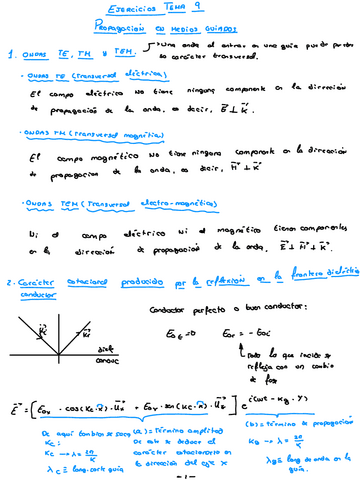 EJERCICIOS TEMA 9
PROPAGACIÓN EN MEDIOS GUIADOS
1. ONDAS TE, TM Y TEM. → Una onda al entrar en una guía puede perder
su carácter transversal.
· ONDAS TE (Transversal eléctrica)
El campo eléctrico no tiene ninguna componente en la dirección
de propagación de la onda, es decir, E ⊥ K.
· ONDAS TM (Transversal magnética)
El campo magnético no tiene ninguna componente en la dirección
de propagación de la onda, es decir, H ⊥ K
· ONDAS TEM (Transversal electro-magnética)
Ni el campo eléctrico ni el magnético tienen componentes
en la dirección de propagación de la onda. E ⊥ H ⊥ K.
2. Carácter estacional producido por la reflexión en la frontera dieléctrico
conductor
Conductor perfecto o buen conductor:
Ki Kr
Eot=0 Eor = -Eoi
dielé
conduc
Todo lo que incide se
refleja con un cambio
de fase
E = [Eox · cos(Kc·x) · Ux + Eoy · sen(Kc·x) · Uy] e i(wt - Kg · y)
De aquí también se saca
Kc:
Kc → λ = 2π/K
λc ≡ long. corte guía
(a) = Término amplitud
De este se deduce el
carácter estacionario en
la dirección del eje x
(b) = Término de propagación
Kg → λ = 2π/K
λg ≡ long. de onda en la
guía.
- 1 -